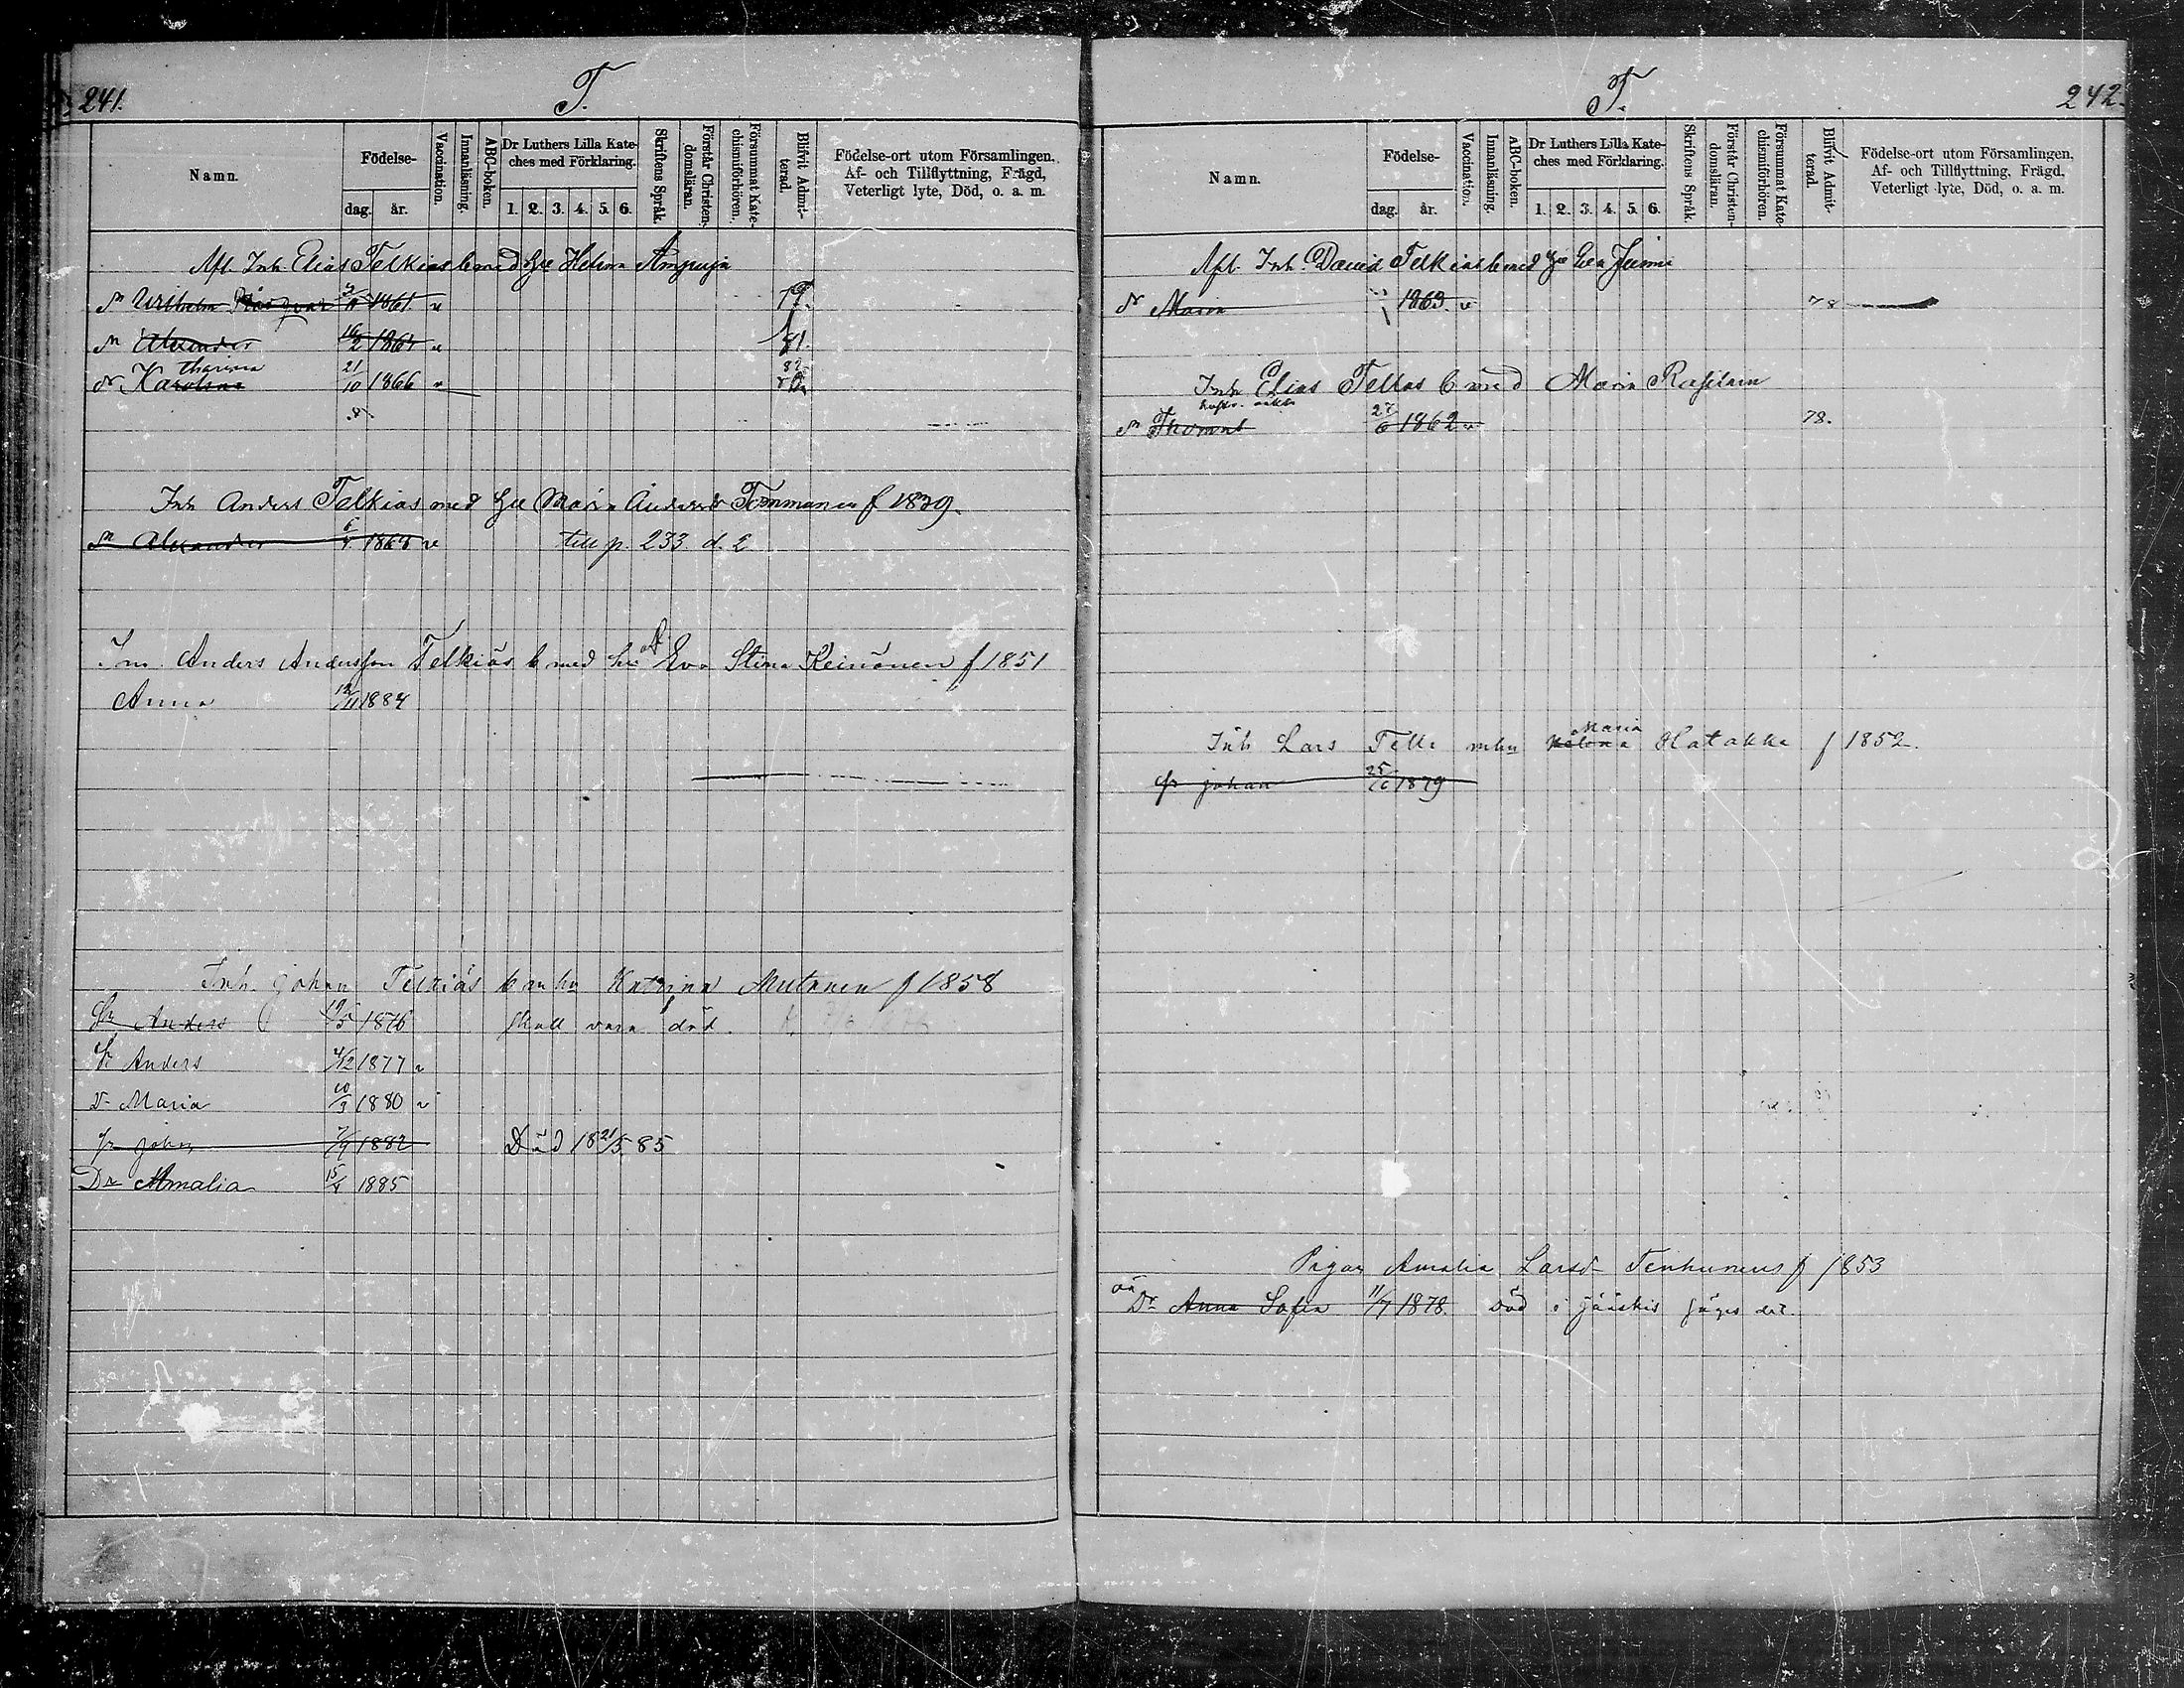 241.
T.
Namn.
Födelse-
dag.
år.
Vaccination.
Innanläsning.
ABC-boken.
Dr Luthers Lilla Kate-
ches med Förklaring.
1. 2. 3. 4. 5. 6.
Skriftens Språk.
Förstår Christen-
domsläran.
Försummat Kate-
chismiförhören.
Blifvit Admit-
terad.
Födelse-ort utom Församlingen.
Af- och Tillflyttning, Frägd,
Veterligt lyte, Död, o. a. m.
Afl. Inh. Elias Telkiäs b med Helena Ampuja
Wilhelm 1861
Alexander 16/2 81.
tharina
Karolina 21/10 1866 82
Inh Anders Telkiäs med Maria Andersdr Tommanen f 1839.
Alexander till p. 233. d. 2
Inh Anders Andersson Telkiäs b med hu Eva Stina Keinönen f 1851
Anna 12/11 1884
Inh. Johan Telkiäs b m hu Katrina Mutanen f 1858
Sr Anders 19/5 1876 skall vara död.
Sr Anders 4/12 1877
Dr Maria 10/3 1880
Sr John 7/9 1882 Död 18 21/5 85
Dr Amalia 15/4 1885
T.
242.
Namn.
Födelse-
dag.
år.
Vaccination.
Innanläsning.
ABC-boken.
Dr Luthers Lilla Kate-
ches med Förklaring.
1. 2. 3. 4. 5. 6.
Skriftens Språk.
Förstår Christen-
domsläran.
Försummat Kate-
chismiförhören.
Blifvit Admit-
terad.
Födelse-ort utom Församlingen,
Af- och Tillflyttning, Frägd,
Veterligt lyte, Död, o. a. m.
Afl. Inh. David Telkiäs b med Eva
Maria 1863. 78
Inh Elias Telkas b med Maria
Thomas 27/6 1862 78.
Maria
Inh Lars Telkk mhu Helena Hatakka f 1852.
Sr Johan 25/6 1879
Pigan Amalia Larsd Tenhunens f 1853
oä
Dr Anna Sofia 11/7 1878. Död i Jääskis säges det.